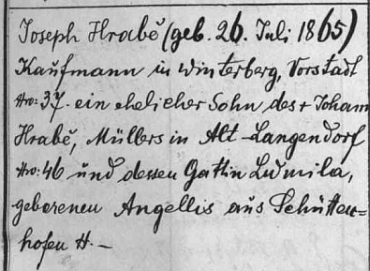 Joseph Hrabě (geb. 26. Juli 1865)
Kaufmann in Winterberg, Vorstadt
Nro: 37. ein ehelicher Sohn des + Johann
Hrabě, Müllers in Alt-Langendorf
Nro: 46 und dessen Gattin Ludmila,
geborenen Angellis aus Schütten-
hofen H. –